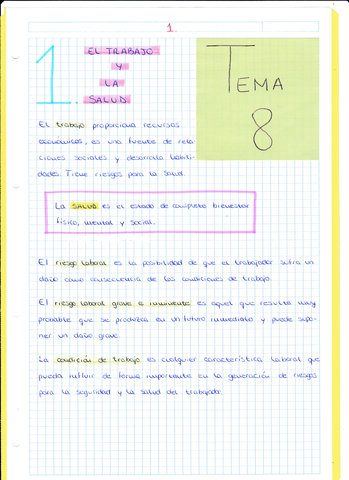 1.
1.
EL TRABAJO
Y
LA
SALUD
TEMA
8
El trabajo proporciona recursos
económicos, es una fuente de rela-
ciones sociales y desarrolla habili-
dades. Tiene riesgos para la salud.
La SALUD es el estado de completo bienestar
físico, mental y social.
El riesgo laboral es la posibilidad de que el trabajador sufra un
daño como consecuencia de las condiciones de trabajo.
El riesgo laboral grave e inminente es aquel que resulta muy
probable que se produzca en un futuro inmediato y puede supo-
ner un daño grave.
La condición de trabajo es cualquier característica laboral que
pueda influir de forma importante en la generación de riesgos
para la seguridad y la salud del trabajador.